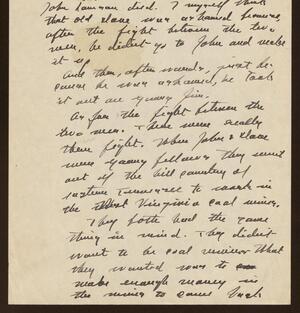 John Lawson died. I myself think
that old Dave was ashamed because,
after the fight between the two
men, he didn't go to John and make
it up
And then, afterwards, just be-
cause he was ashamed, he took
it out on young Jim.
As for the fight between the
two men. There were really
three fights. When John & Dave
were young fellows they went
out of the hill country of
eastern Tennessee to work in
the West Virginia coal mines.
They both had the same
thing in mind. They didn't
want to be coal miners. What
they wanted was to
make enough money in
the mines to come back